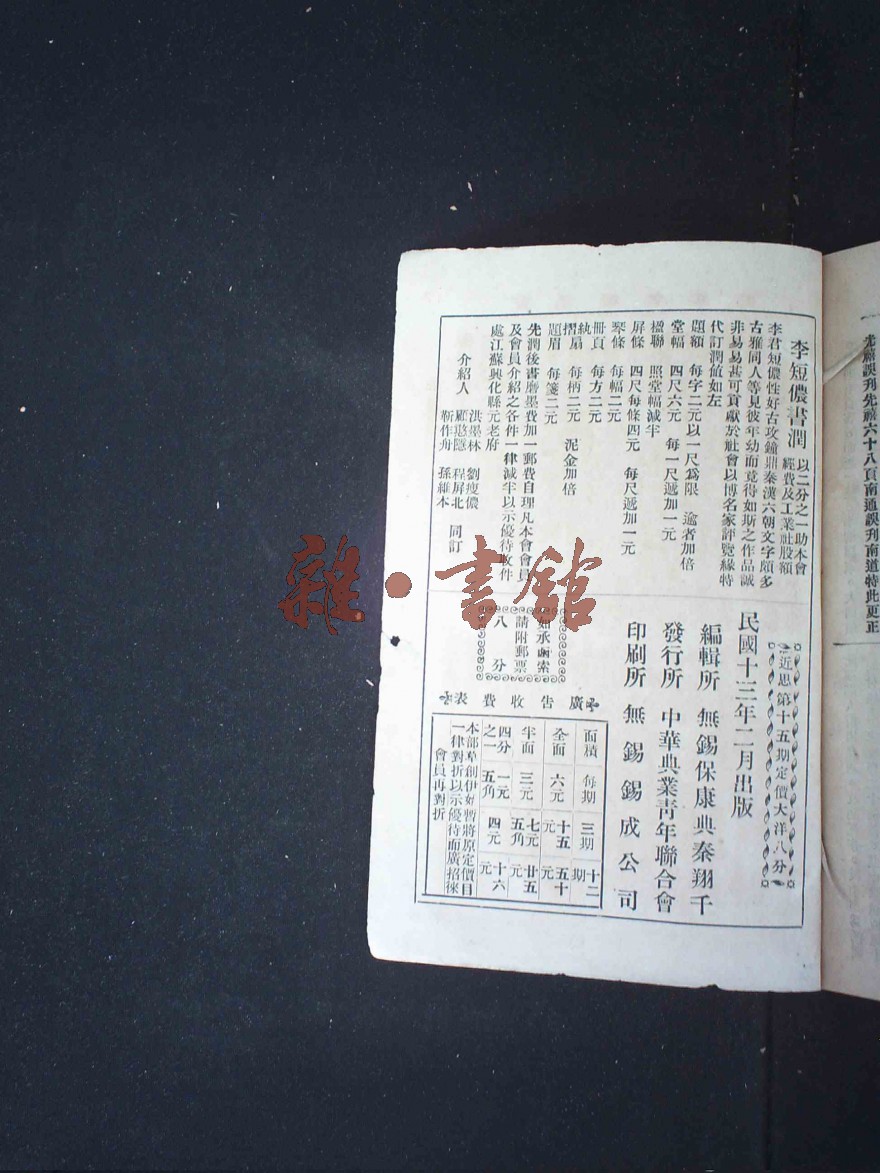 李短儂書潤
以二分之一助本會
經費及工業社股額
李君短儂性好古攻鐘鼎秦漢六朝文字頗多
古雅同人等見彼年幼而竟得如斯之作品誠
非易易甚可貢獻於社會以博名家評覽緣特
代訂潤值如左
題額 每字二元以一尺為限 逾者加倍
堂幅 四尺六元 每一尺遞加一元
楹聯 照堂幅減半
屏條 四尺每條四元 每尺遞加一元
琴條 每幅二元
冊頁 每方二元
紈摺扇 每柄二元 泥金加倍
題眉 每箋二元
先潤後書磨墨費加一郵費自理凡本會會員
及會員介紹之各件一律減半以示優待收件
處江蘇興化縣元老府
介紹人
洪墨林 劉瘦儂
顧憨隱 程屏北
靳作舟 孫維本
同訂
近思第十五期定價大洋八分
民國十三年二月出版
編輯所 無錫保康典秦翔千
發行所 中華典業青年聯合會
印刷所 無錫錫成公司
如承函索
請附郵票
八分
廣告收費表
面積 每期 三期 十二期
全面 六元 十五元 五十元
半面 三元 七元五角 廿五元
四分之一 一元五角 四元 十六元
本部草創伊始暫將原定價目
一律對折以示優待而廣招徠
會員再對折
先嚴誤刊先釐六十八頁南通誤刊南道特此更正
雜·書館